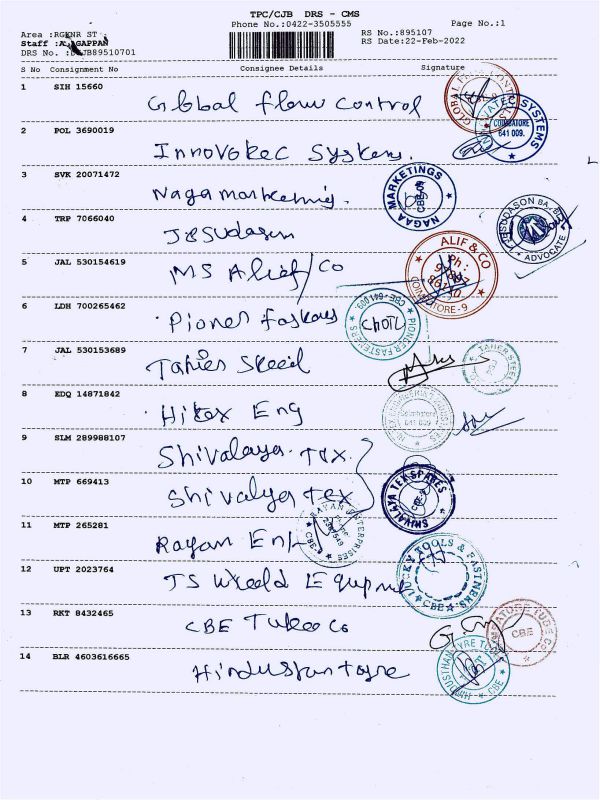 TPC/CJB DRS - CMS
Phone No.:0422-3505555
Page No.:1
Area :RGKNR ST
RS No.:895107
Staff :A. AGAPPAN
RS Date:22-Feb-2022
DRS No. : JB89510701
S No Consignment No Consignee Details Signature
1 SIH 15660 Global flow control
2 POL 3690019 Innovatec Systems.
3 SVK 20071472 Naga marketing.
4 TRP 7066040 Jesudasan
5 JAL 530154619 MS Alief/Co
6 LDH 700265462
7 JAL 530153689 Taher Steel
8 EDQ 14871842 Hitex Eng
9 SLM 289988107 Shivalaya tex.
10 MTP 669413 Shivalya tex
11 MTP 265281 Rayan Ent
12 UPT 2023764 TS World Equpme
13 RKT 8432465 CBE Tube Co
14 BLR 4603616665 Hindustan tyre
TEC SYSTEMS
COIMBATORE
641 009.
NAGAA MARKETINGS
CBE
ADVOCATE
ALIF & CO
Ph :
COIMBATORE-9
PIONEER FASTENERS
CBE-641 009
TAHER STEEL
Coimbatore
641 009
SHIVALAYA TEKSPARES
CBE
RAYAN ENTERPRISES
CBE-9
LUCKY TOOLS & FASTNERS
CBE
TUBE Co
CBE
HINDUSTHAN TYRE
CBE